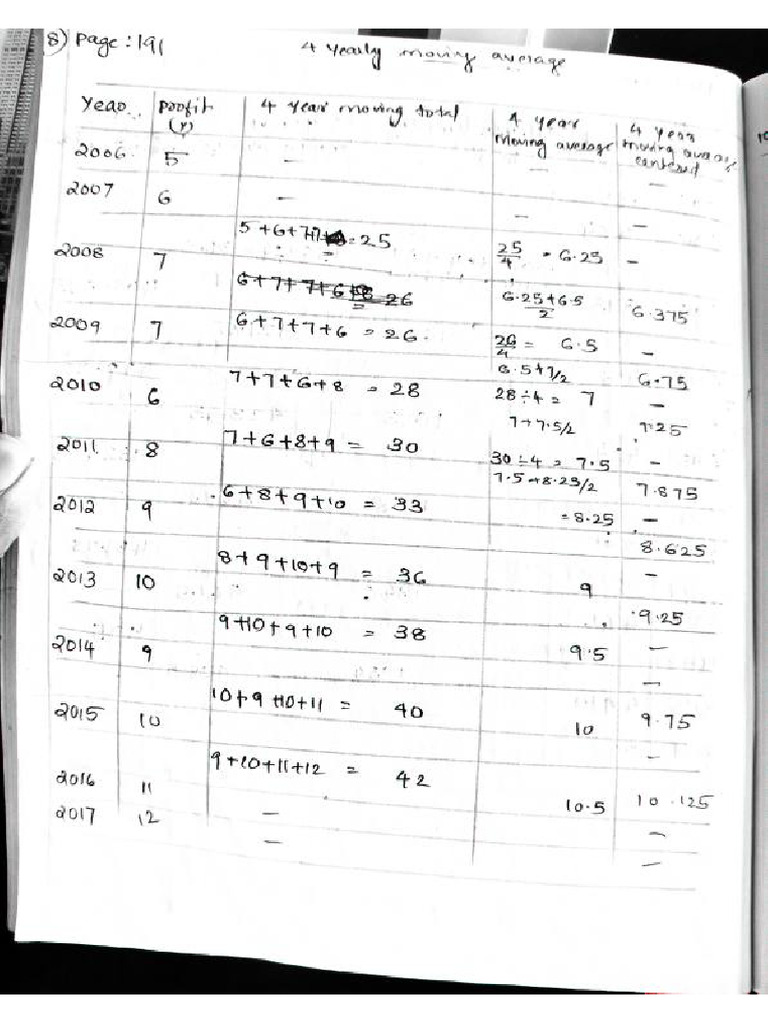 8) Page: 191 4 Yearly moving average
Year profit (y) 4 year moving total 4 year Moving average 4 year moving average centered
2006 5 - - -
2007 6 - - -
5+6+7+7 = 25 25/4 = 6.25 -
2008 7
6+7+7+6 26 6.25+6.5/2 6.375
2009 7 6+7+7+6 = 26. 26/4 = 6.5 -
6.5+7/2 6.75
2010 6 7+7+6+8 = 28 28÷4 = 7 -
7+7.5/2 7.25
2011 8 7+6+8+9 = 30 30÷4 = 7.5 -
7.5+8.25/2 7.875
2012 9 6+8+9+10 = 33 =8.25 -
8.625
2013 10 8+9+10+9 = 36 9 -
9.25
2014 9 9+10+9+10 = 38 9.5 -
-
2015 10 10+9+10+11 = 40 10 9.75
-
2016 11 9+10+11+12 = 42 10.5 10.125
2017 12 - -
- -